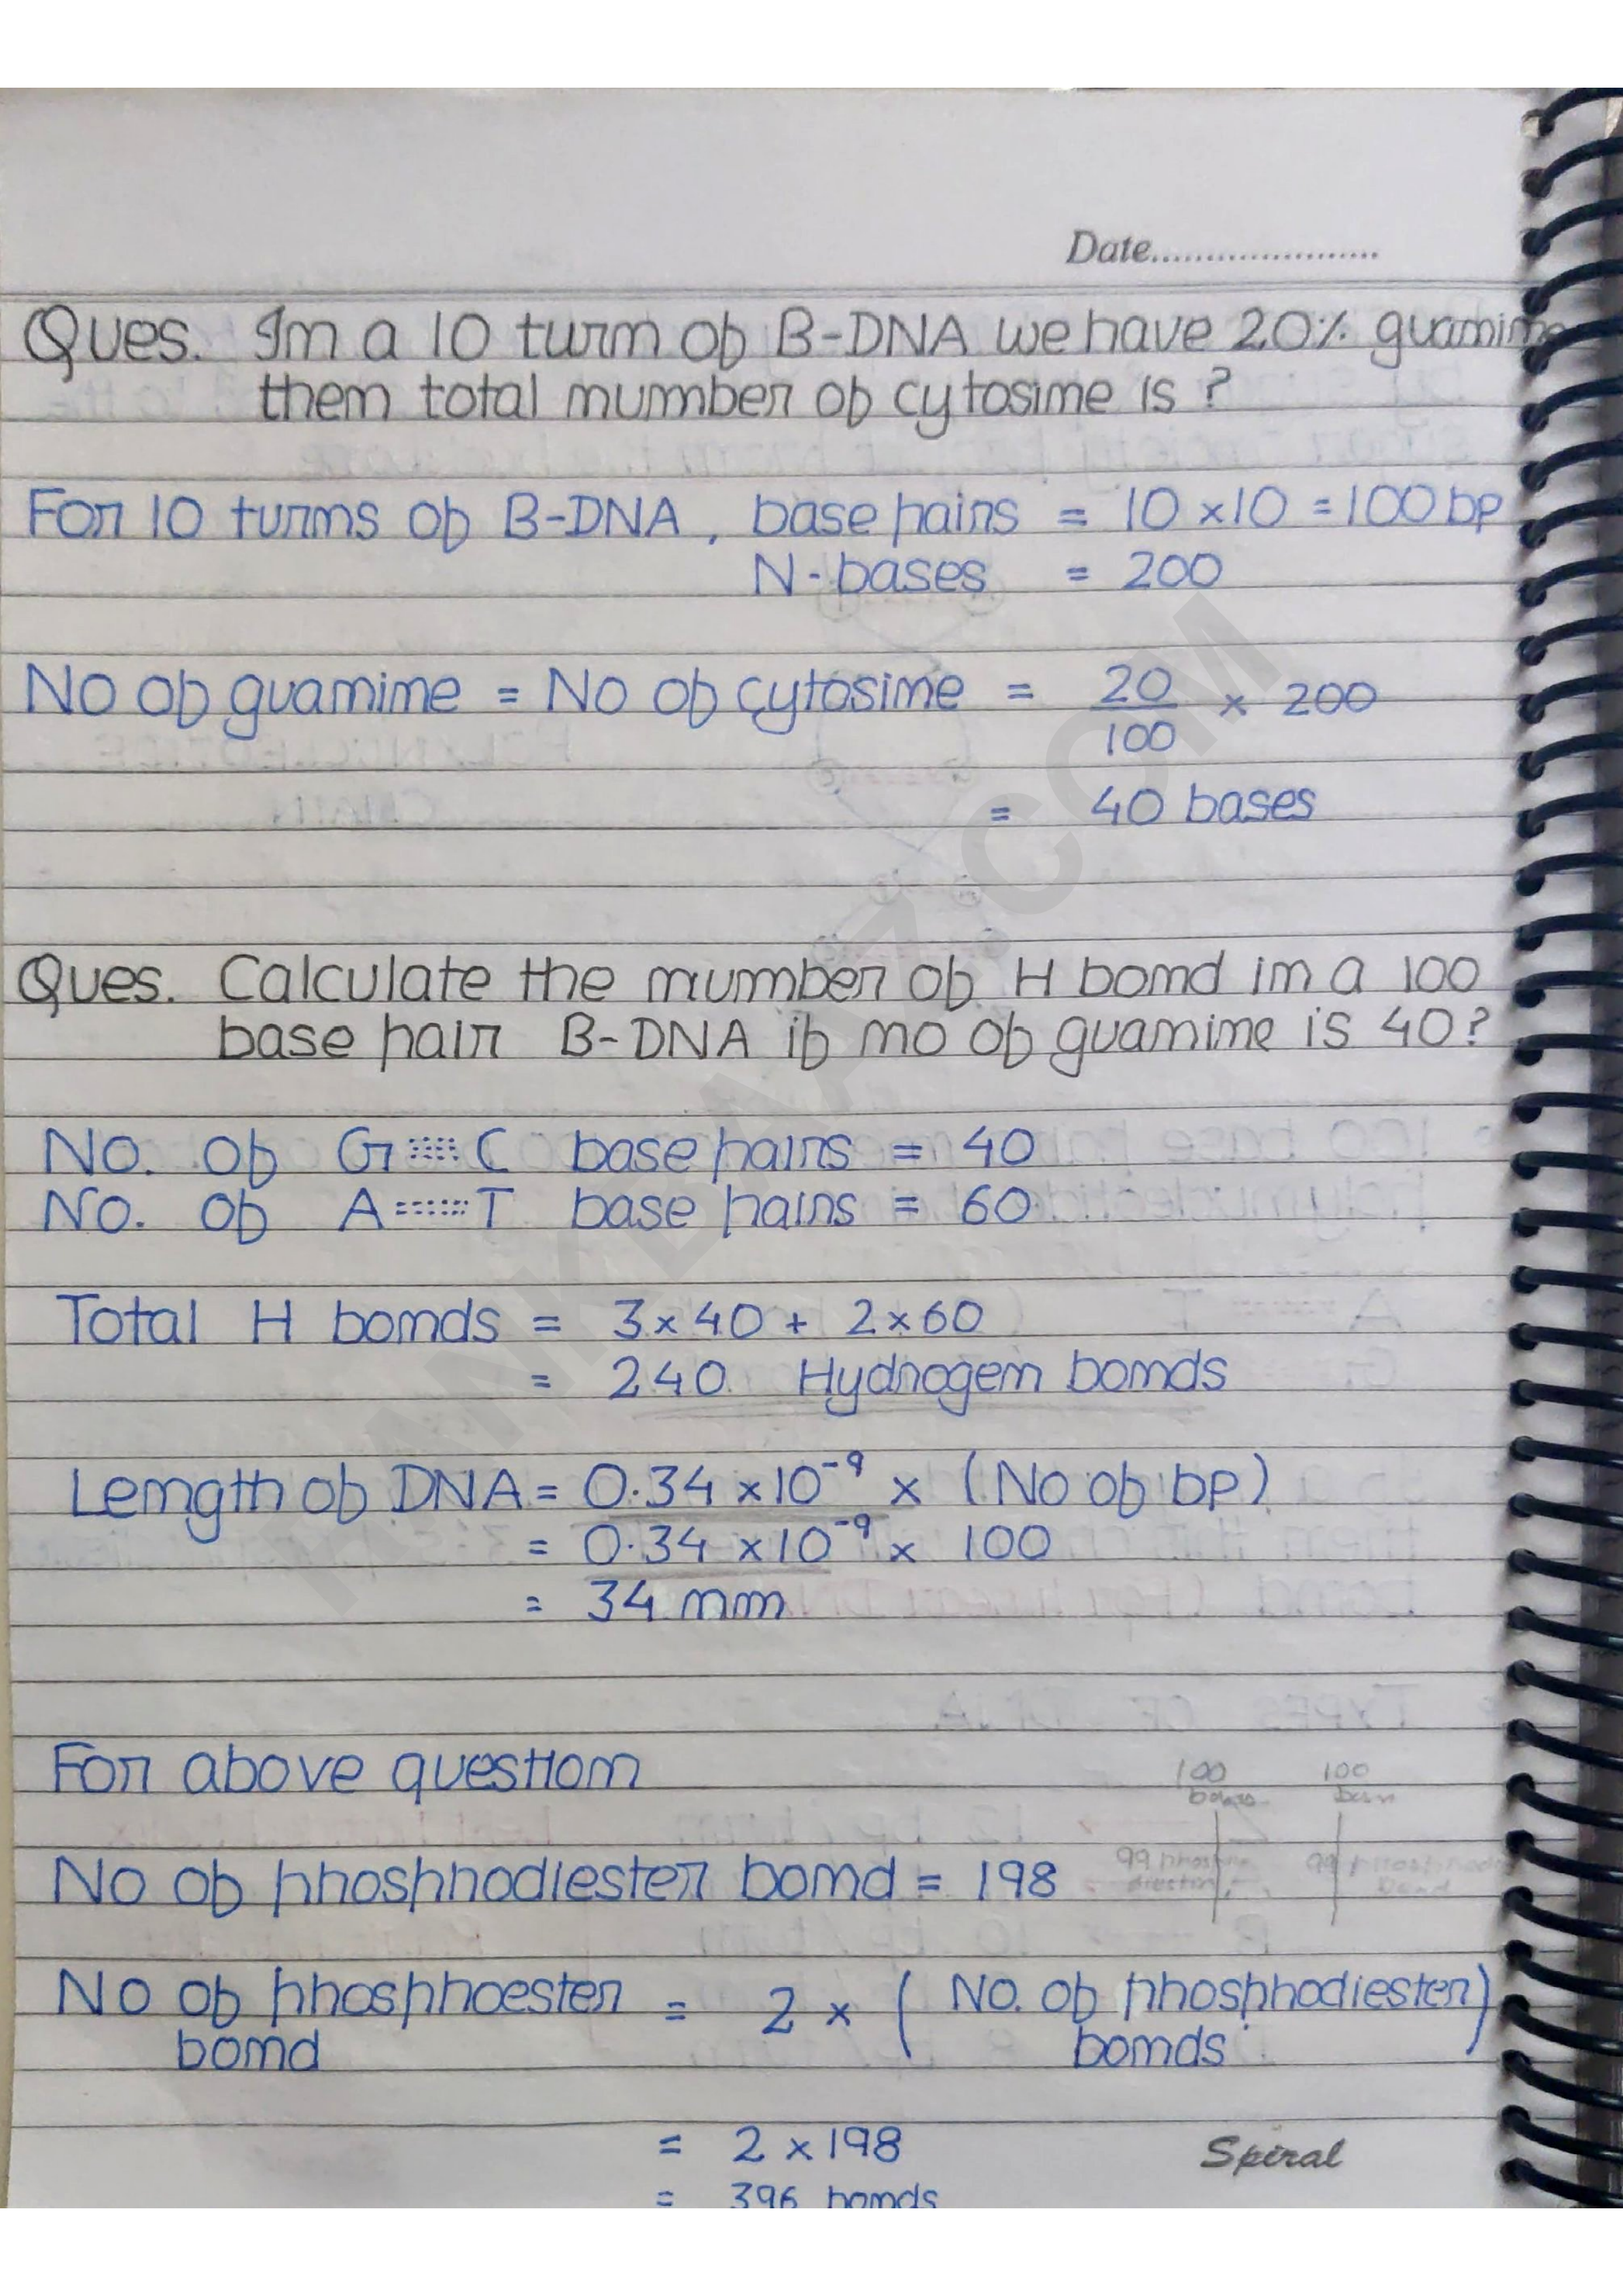 Date......................
Ques. In a 10 turn of B-DNA we have 20% guanine
then total number of cytosine is ?
For 10 turns of B-DNA, base pairs = 10 × 10 = 100 bp
N-bases = 200
No of guanine = No of cytosine = 20/100 × 200
= 40 bases
Ques. Calculate the number of H bond in a 100
base pair B-DNA if no of guanine is 40?
No. of G C base pairs = 40
No. of A T base pairs = 60
Total H bonds = 3 × 40 + 2 × 60
= 240 Hydrogen bonds
Length of DNA = 0.34 × 10⁻⁹ × (No of bp)
= 0.34 × 10⁻⁹ × 100
= 34 nm
For above question
100 100
No of phosphodiester bond = 198
99 99
No of phosphoester bond = 2 × (No. of phosphodiester bonds)
= 2 × 198
= 396 bonds
Spiral